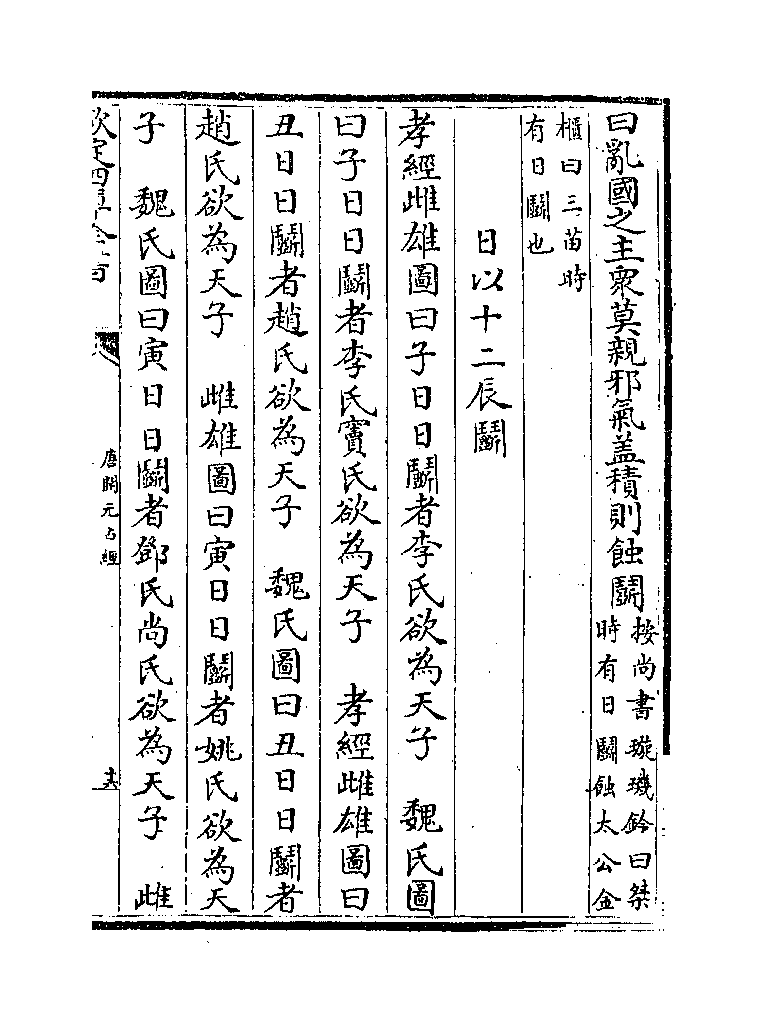 曰亂國之主衆莫親邪氣盖積則蝕鬭按尚書璇璣鈐曰桀
時有日鬭蝕太公金
櫃曰三苗時
有日鬭也
日以十二辰鬭
孝經雌雄圖曰子日日鬭者李氏欲為天子　魏氏圖
曰子日日鬭者李氏竇氏欲為天子　孝經雌雄圖曰
丑日日鬭者趙氏欲為天子　魏氏圖曰丑日日鬭者
趙氏欲為天子　雌雄圖曰寅日日鬭者姚氏欲為天
子　魏氏圖曰寅日日鬭者鄧氏尚氏欲為天子　雌
欽定四庫全書
唐開元占經
十六